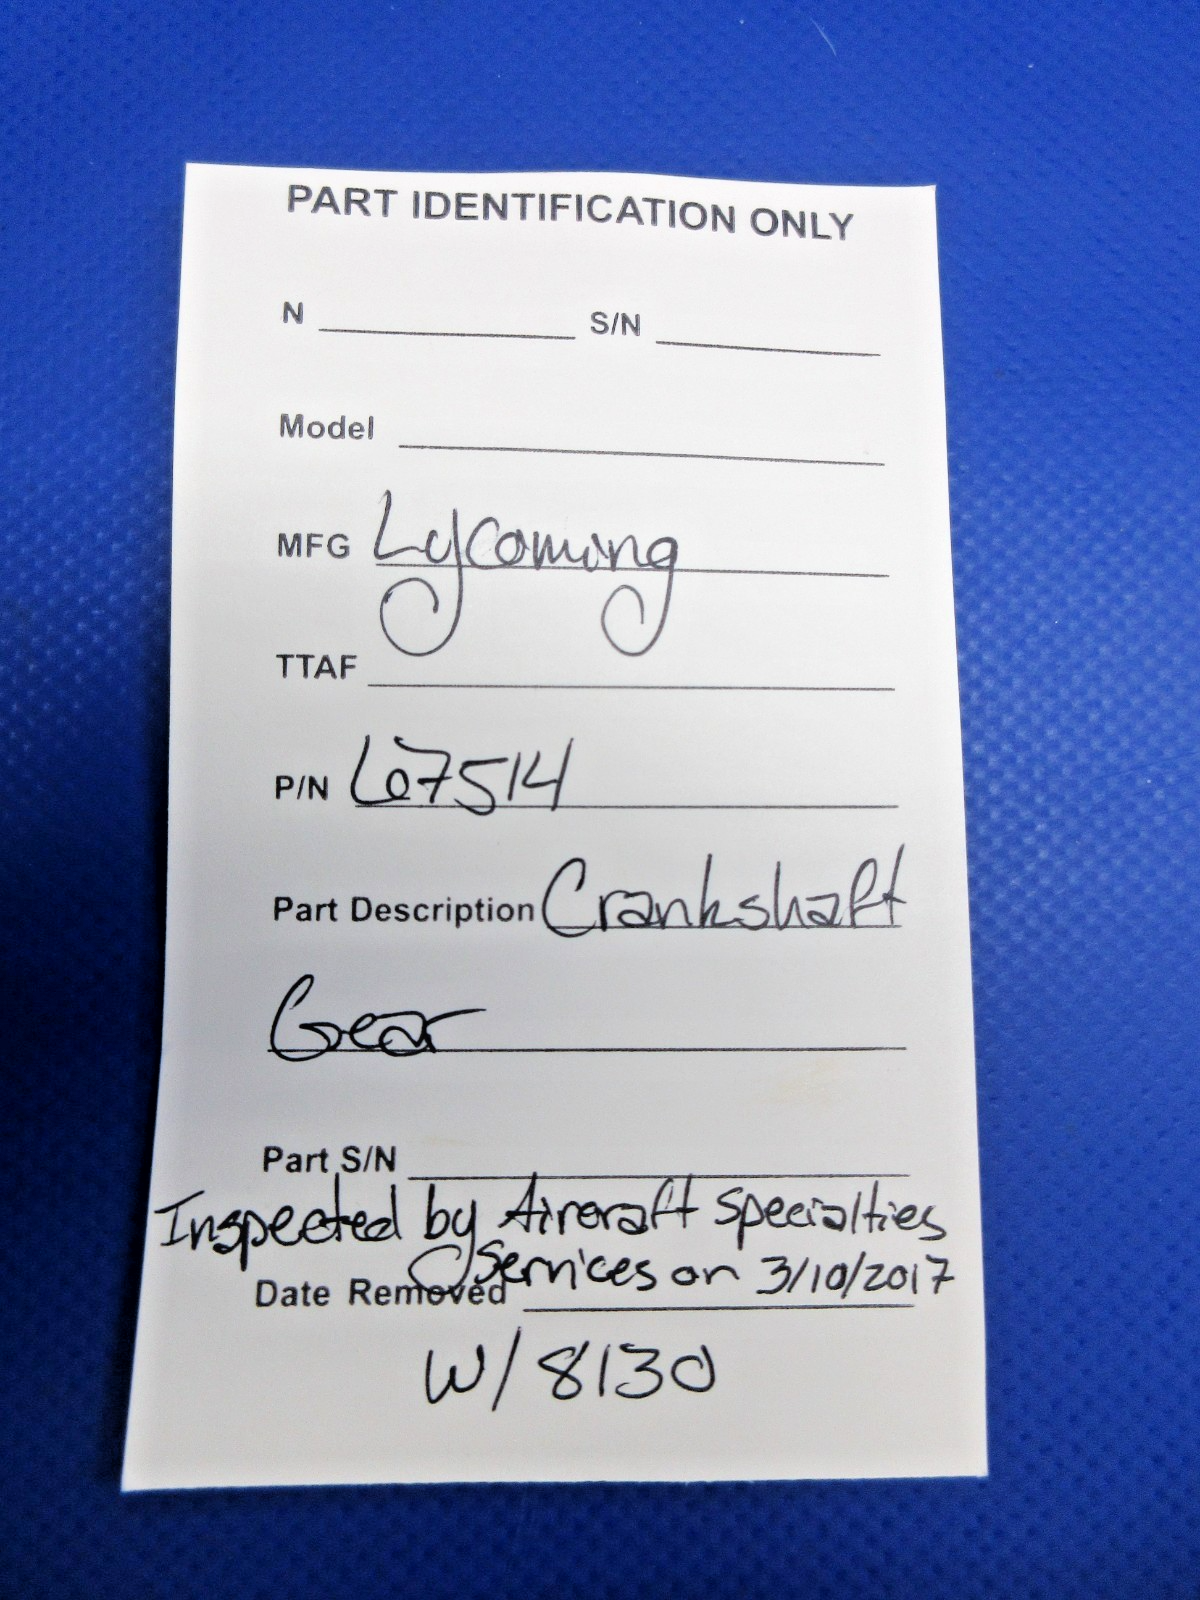 PART IDENTIFICATION ONLY
N S/N
Model
MFG Lycoming
TTAF
P/N 67514
Part Description Crankshaft
Gear
Part S/N
Inspected by Aircraft Specialties
Services on 3/10/2017
Date Removed
W/8130